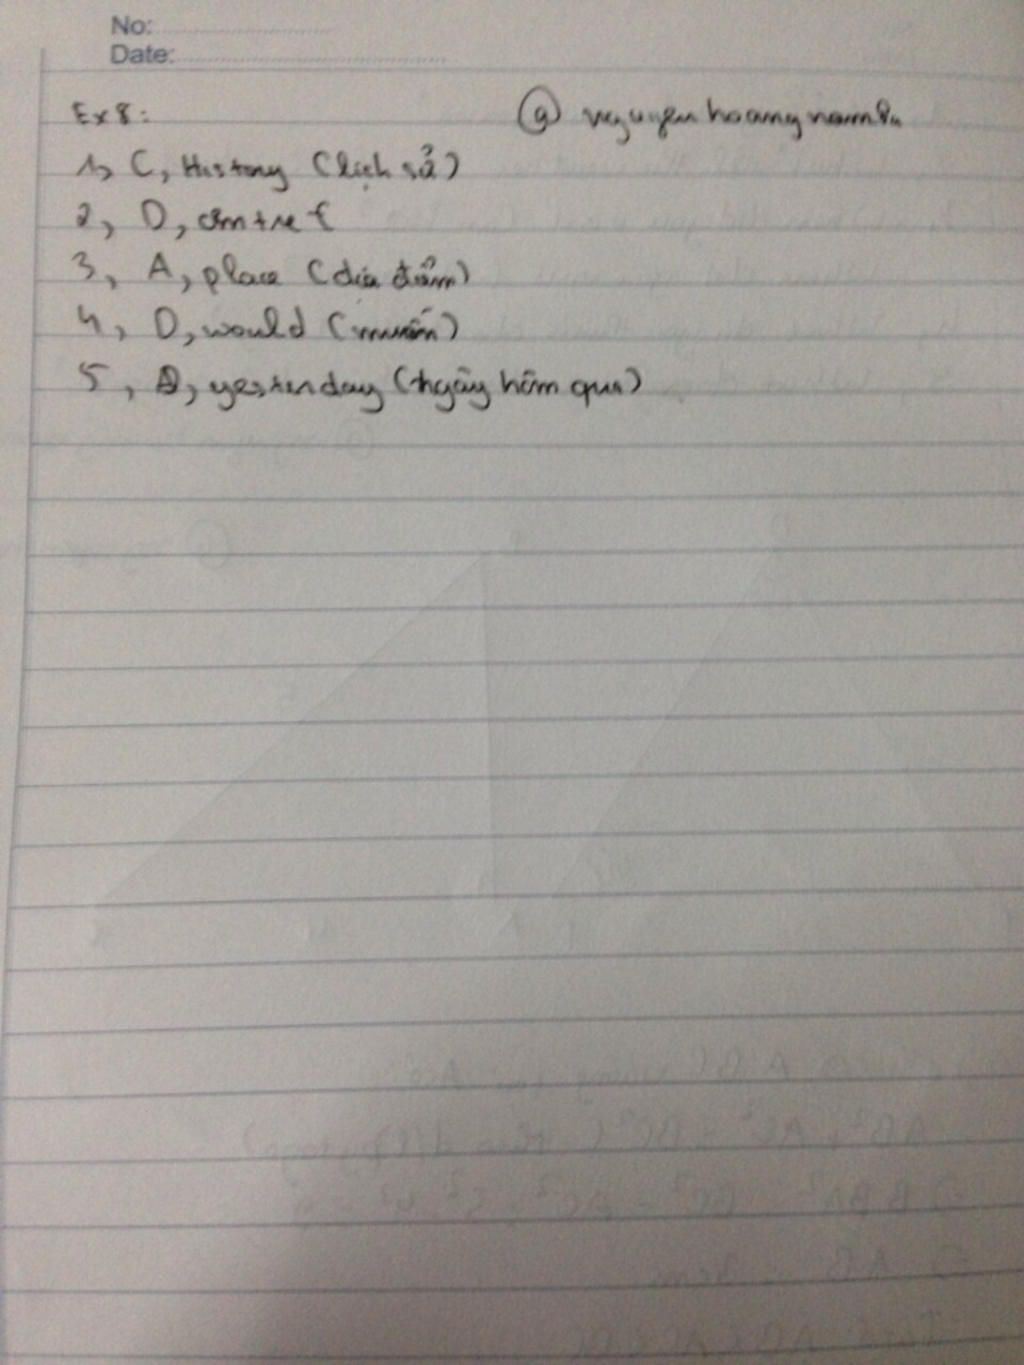 No:
Date:
Ex8: @ nguyenhoangnam8a
1, C, History (lịch sử)
2, D,
3, A, place (địa điểm)
4, D, would (muốn)
5, D, yesterday (ngày hôm qua)